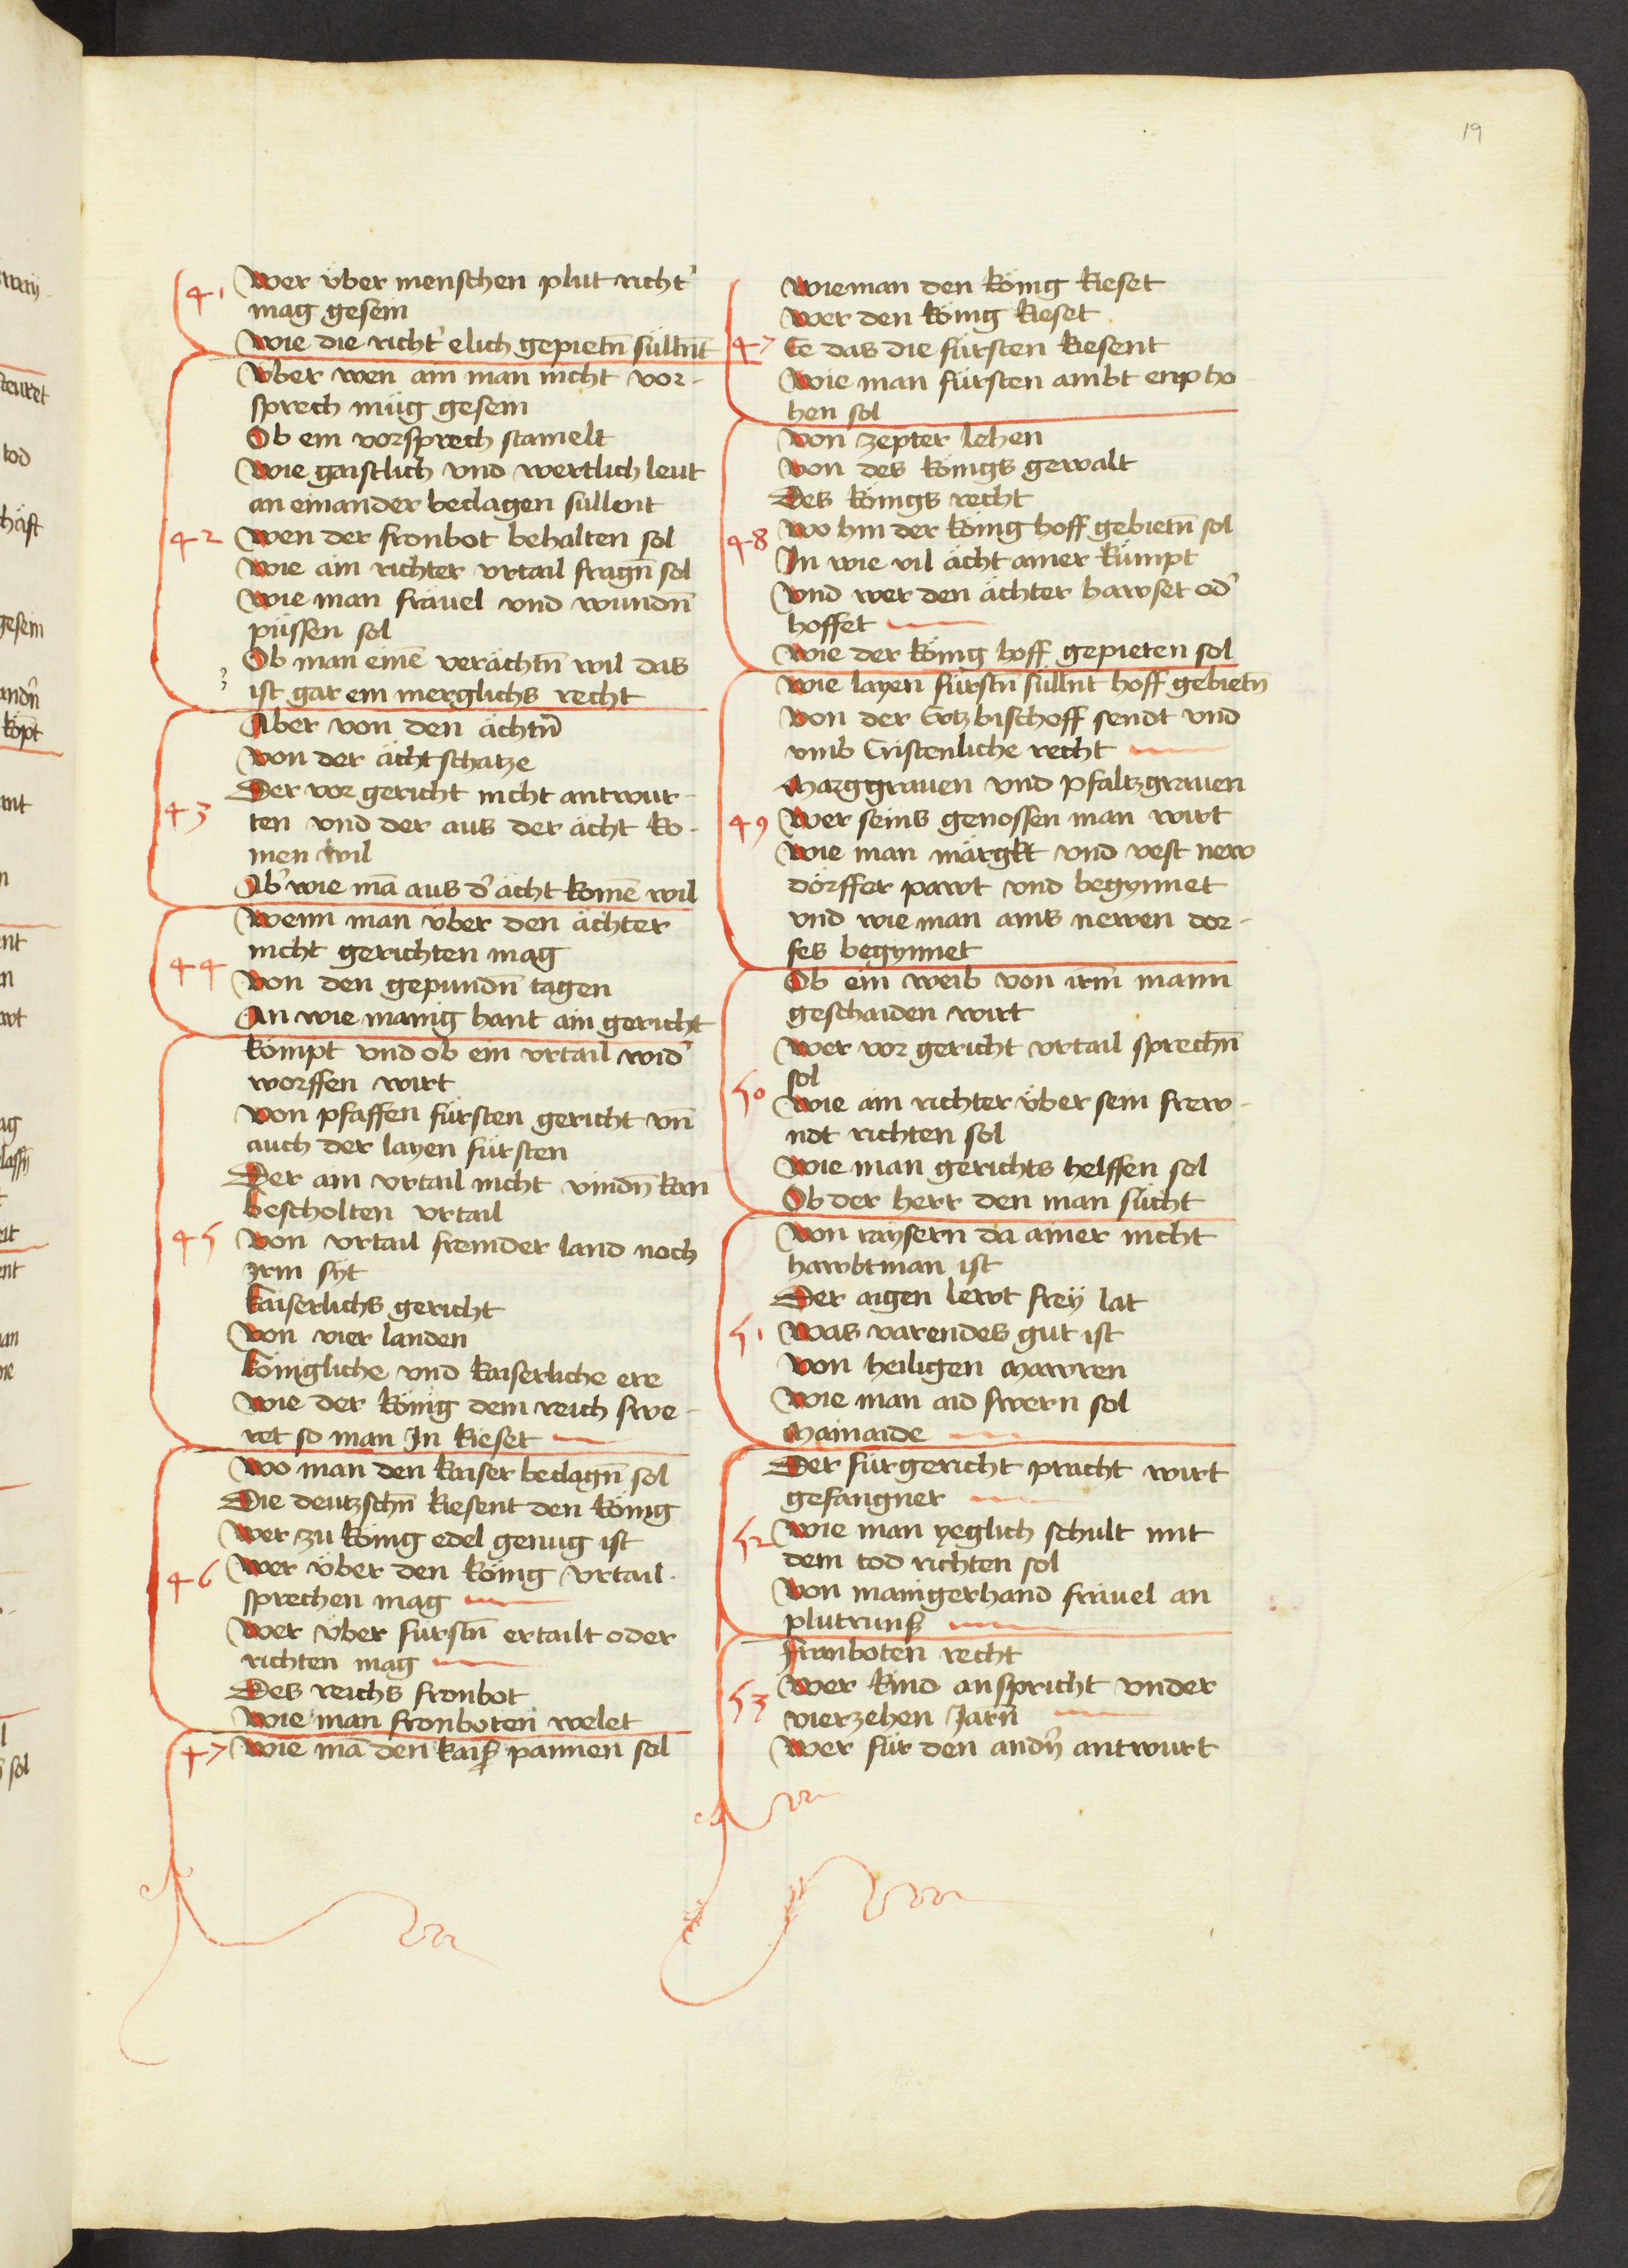 19
41 Wer über menschen plut richt'
mag gesein
Wie die richt' elich gepietn̄ süllnt
Vber wen ain man nicht vor-
sprech müg gesein
Ob ein vorsprech stamelt
Wie gaistlich vnd wertlich leut
an einander beclagen sullent
42 Wen der fronbot behalten sol
Wie ain richter vrtail fragn̄ sol
Wie man fräuel vnd wundn̄
püssen sol
Ob man einē verächtn̄ wil das
ist gar ein merglichs recht
Aber von den ächtn̄
Von der ächt schatze
Der vor gericht nicht antwur-
43 ten vnd der aus der ächt ko-
men wil
Ab' wie mā aus d' ächt komē wil
Wenn man über den ächter
44 nicht gerichten mag
Von den gepundn̄ tagen
An wie manig hant ain gericht
kompt vnd ob ein vrtail wid'
worffen wirt
Von pfaffen fürsten gericht vn̄
auch der layen fürsten
Der ain vrtail nicht vindn̄ kan
bescholten vrtail
45 Von vrtail fremder land noch
irm syt
kaiserlichs gericht
Von vier landen
königliche vnd kaiserliche ere
Wie der König dem reich swe-
ret so man In kieset
Wo man den kaiser beclagn̄ sol
Die deutzschn̄ kiesent den König
Wer zu König edel genug ist
46 Wer über den König vrtail
sprechen mag
Wer über fürstn̄ ertailt oder
richten mag
Des reichs fronbot
Wie man fronboten welet
47 Wie mā den kais' pannen sol
Wie man den König kieset
Wer den König kieset
47 Ee das die fürsten kiesent
Wie man fürsten ambt enpho
hen sol
Von zepter lehen
Von des Königs gewalt
Des Königs recht
48 Wo hin der König hoff gebietn̄ sol
In wie vil ächt ainer kümpt
Vnd wer den ächter hawset od'
hoffet
Wie der König hoff gepieten sol
Wie layen fürstn̄ süllnt hoff gebietn̄
Von der Ertzbischoff sendt vnd
vmb Cristenliche recht
Marggrauen vnd pfaltzgrauen
49 Wer seins genossen man wirt
Wie man märgkt vnd vest new
dörffer pawt vnd begynnet
vnd wie man ains newen dor-
fes begynnet
Ob ein weib von irm mann
geschaiden wirt
Wer vor gericht vrtail sprechn̄
sol
50 Wie ain richter über sein frew-
ndt richten sol
Wie man gerichts helffen sol
Ob der herr den man sücht
Von raysern da ainer nicht
hawbtman ist
Der aigen lewt frey lat
51 Was varendes gut ist
Von heiligen mawren
Wie man aid swern sol
Mainaide
Der für gericht pracht wirt
gefangner
52 Wie man yeglich schult mit
dem tod richten sol
Von manigerhand fräuel an
plutruns
fronboten recht
53 Wer kind anspricht vnder
vierzehen Jarn̄
Wer für den andn̄ antwurt